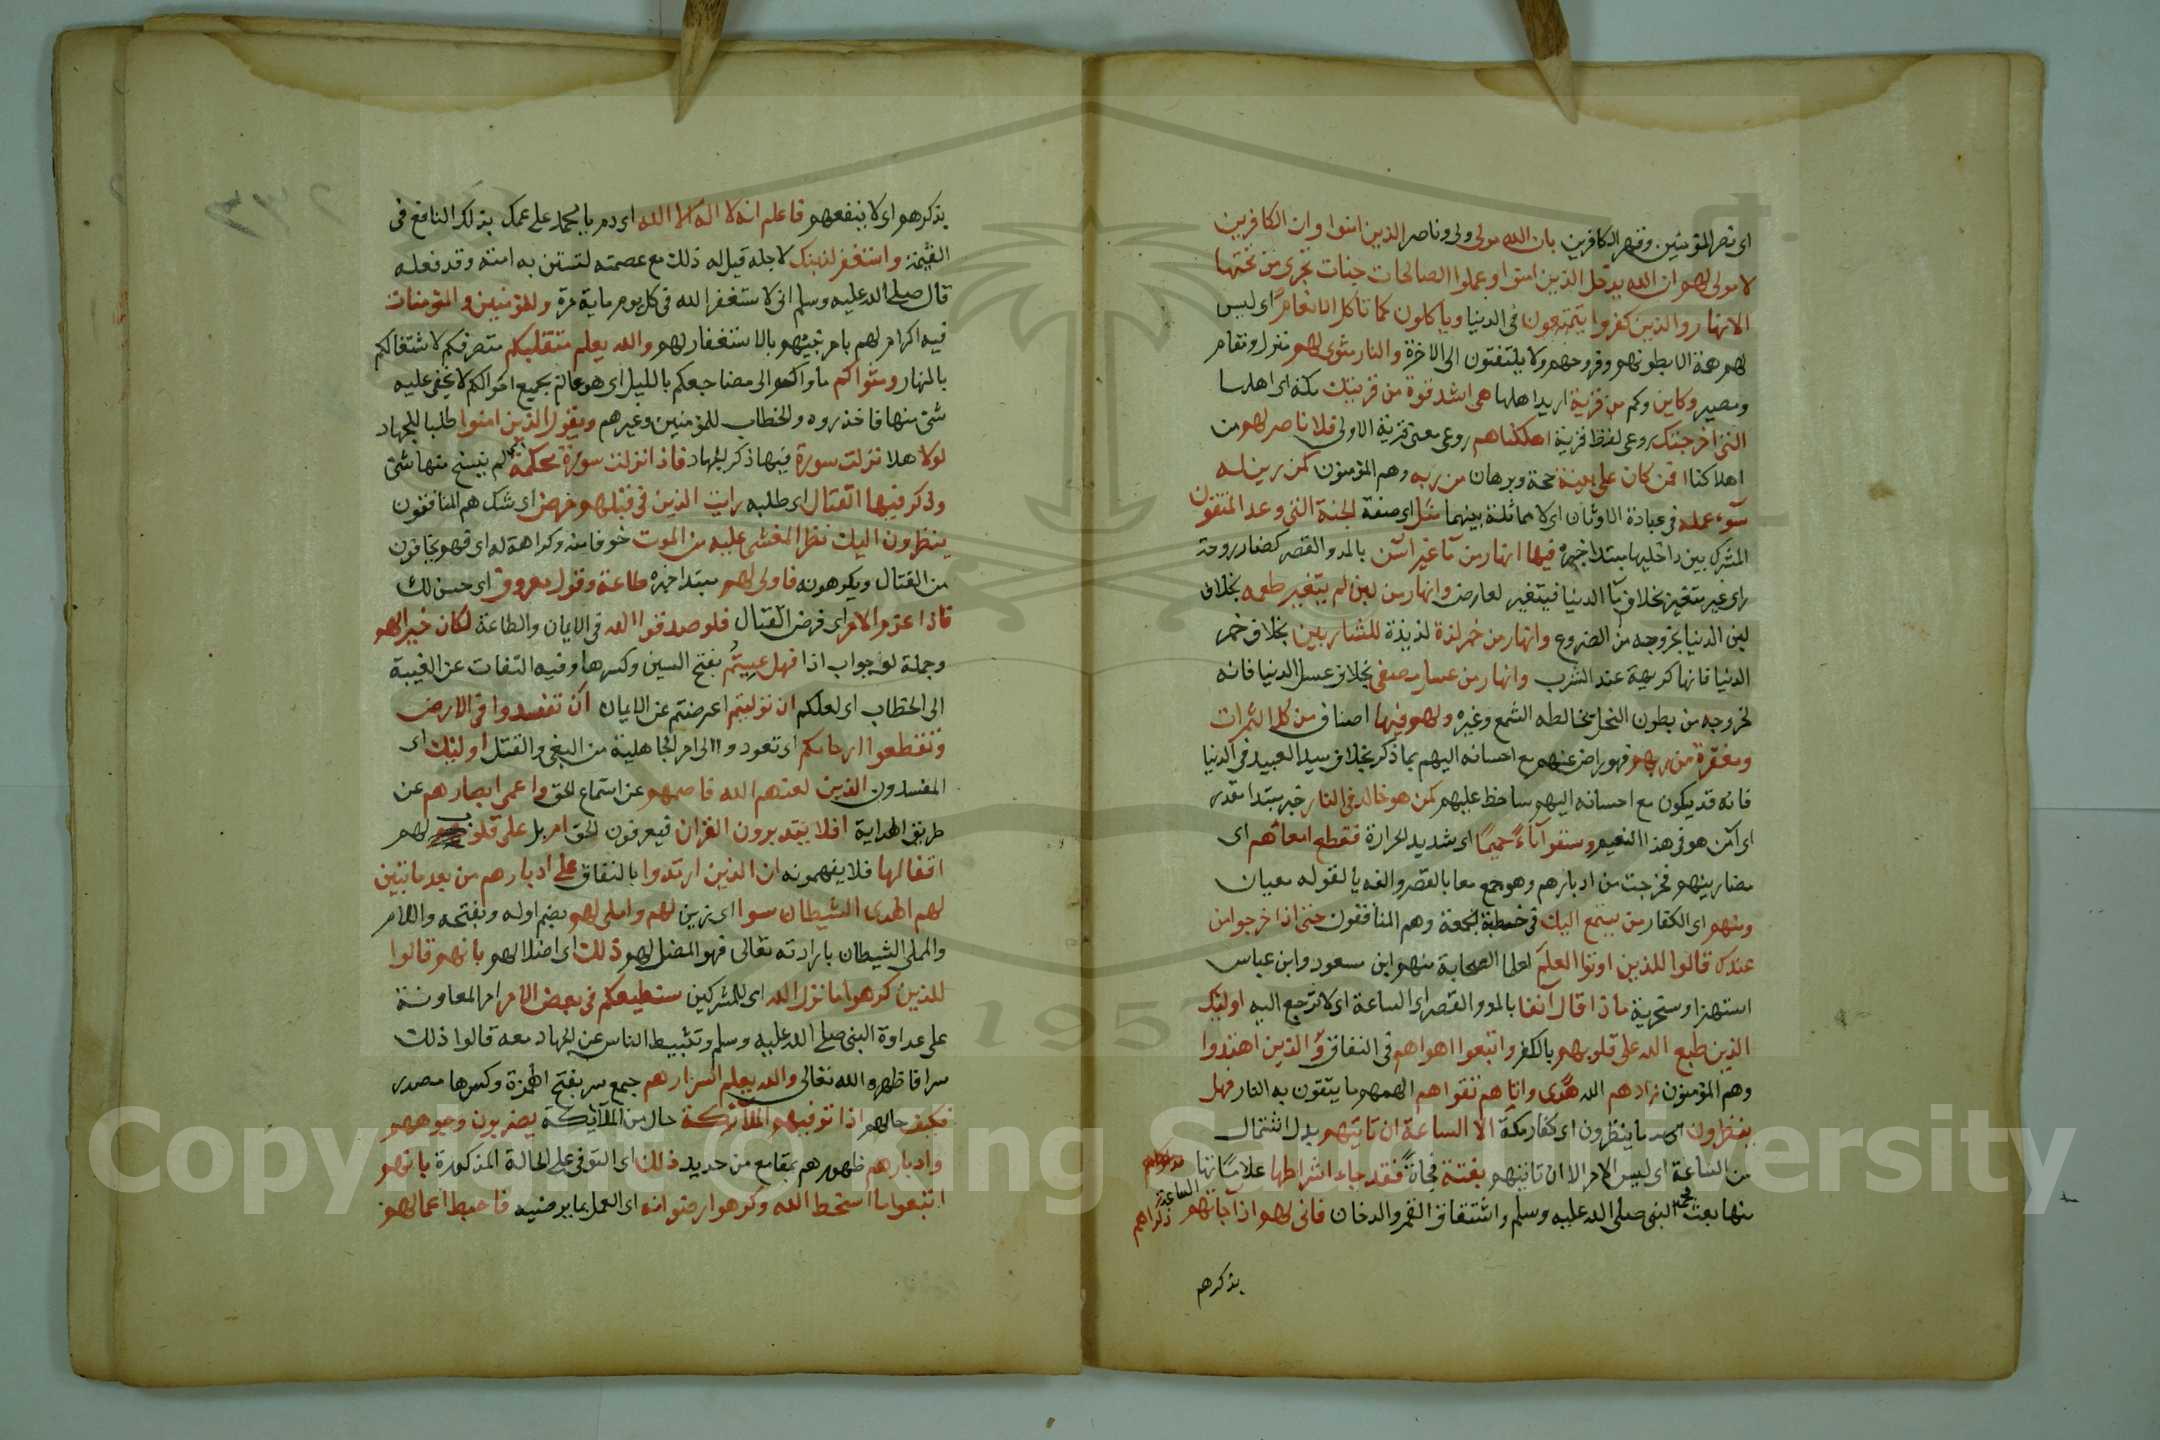 اى نصر المؤمنين وقهر الكافرين بان الله مولى ولى وناصر الذين امنوا وان الكافرين
لا مولى لهم ان الله يدخل الذين امنوا وعملوا الصالحات جنات تجرى من تحتها
الانهار والذين كفروا يتمتعون فى الدنيا وياكلون كما تاكل الانعام اى ليس
لهم همة الا بطونهم وفروجهم ولا يلتفتون الى الاخرة والنار مثوى لهم منزل ومقام
ومصير وكاين وكم من قرية اريد اهلها هى اشد قوة من قريتك مكة اى اهلها
التى اخرجتك روعى لفظ قرية اهلكناهم روعى معنى قرية الاولى فلا ناصر لهم من
اهلاكنا افمن كان على بينة حجة وبرهان من ربه وهم المؤمنون كمن زين له
سوء عمله فى عبادة الاوثان اى لا مماثلة بينهما مثل اى صفة الجنة التى وعد المتقون
المشترك بين داخليها مبتدا خبره فيها انهار من ماء غير آسن بالمد والقصر كضارب وحذر
اى غير متغير بخلاف ماء الدنيا فيتغير لعارض وانهار من لبن لم يتغير طعمه بخلاف
لبن الدنيا بخروجه من الضروع وانهار من خمر لذة لذيذة للشاربين بخلاف خمر
الدنيا فانها كريهة عند الشرب وانهار من عسل مصفى بخلاف عسل الدنيا فانه
لخروجه من بطون النحل مخالطه الشمع وغيره ولهم فيها اصناف من كل الثمرات
ومغفرة من ربهم فهو راض عنهم مع احسانه اليهم بما ذكر بخلاف سيد العبيد فى الدنيا
فانه قد يكون مع احسانه اليهم ساخط عليهم كمن هو خالد فى النار خبر مبتدا مقدر
اى امن هو فى هذا النعيم وسقوا ماء حميما اى شديد الحرارة فقطع امعائهم اى
مصارينهم فخرجت من ادبارهم وهو جمع معا بالقصر والفه ياء لقوله معيان
ومنهم اى الكفار من يستمع اليك فى خطبة الجمعة وهم المنافقون حتى اذا خرجوا من
عندك قالوا للذين اوتوا العلم لعلما الصحابة منهم ابن مسعود وابن عباس
استهزا وسخرية ماذا قال آنفا بالمد والقصر اى الساعة اى لا نرجع اليه اولئك
الذين طبع الله على قلوبهم بالكفر واتبعوا اهواهم فى النفاق والذين اهتدوا
وهم المؤمنون زادهم الله هدى واتاهم تقواهم الهمهم ما يتقون به النار فهل
ينظرون ما ينظرون اى كفار مكة الا الساعة ان تاتيهم بدل اشتمال
من الساعة اى ليس الامر الا ان تاتيهم بغتة فجاة فقد جاء اشراطها علاماتها
منها بعث النبى صلى الله عليه وسلم وانشقاق القمر والدخان فانى لهم اذا جاءتهم الساعة ذكراهم
يذكرهم
يذكرهم اى لا ينفعهم فاعلم انه لا اله الا الله اى دم يا محمد على علمك بذلك النافع فى
القيمة واستغفر لذنبك لاجله قيل له ذلك مع عصمته لتستن به امته وقد فعله
قال صلى الله عليه وسلم انى لاستغفر الله فى كل يوم ماية مرة وللمؤمنين والمؤمنات
فيه اكرام لهم بامر نبيهم بالاستغفار لهم والله يعلم متقلبكم متصرفكم لاشتغالكم
بالنهار ومثواكم ماواكم الى مضاجعكم بالليل اى هو عالم بجميع احوالكم لا يخفى عليه
شئ منها فاحذروه والخطاب للمؤمنين وغيرهم ويقول الذين امنوا طلبا للجهاد
لولا هلا نزلت سورة فيها ذكر الجهاد فاذا نزلت سورة محكمة لم ينسخ منها شئ
وذكر فيها القتال اى طلبه رايت الذين فى قلبهم مرض اى شك هم المنافقون
ينظرون اليك نظر المغشى عليه من الموت خوفا منه وكراهة له اى فهم يخافون
من القتال ويكرهونه فاولى لهم مبتدا خبره طاعة وقول معروف اى حسن لك
فاذا عزم الامر اى فرض القتال فلو صدقوا الله فى الايمان والطاعة لكان خيرا لهم
وجملة لو جواب اذا فهل عسيتم بفتح السين وكسرها وفيه التفات عن الغيبة
الى الخطاب اى لعلكم ان توليتم اعرضتم عن الايمان ان تفسدوا فى الارض
وتقطعوا ارحامكم اى تعودوا الى امر الجاهلية من البغى والقتل اولئك اى
المفسدون الذين لعنهم الله فاصمهم عن استماع الحق واعمى ابصارهم عن
طريق الهداية افلا يتدبرون القران فيعرفون الحق ام بل على قلوب لهم
اقفالها فلا يفهمونه ان الذين ارتدوا بالنفاق على ادبارهم من بعد ما تبين
لهم الهدى الشيطان سول اى زين لهم واملى لهم بضم اوله وبفتحه واللام
والمملى الشيطان بارادته تعالى فهو المضل لهم ذلك اى اضلالهم بانهم قالوا
للذين كرهوا ما نزل الله اى للمشركين سنطيعكم فى بعض الامر امر المعاونة
على عداوة النبى صلى الله عليه وسلم وتثبيط الناس عن الجهاد معه قالوا ذلك
سرا فاظهره الله تعالى والله يعلم اسرارهم جمع سر بفتح الهمزة وكسرها مصدر
فكيف حالهم اذا توفيهم الملائكة حال من الملائكة يضربون وجوههم
وادبارهم ظهورهم بمقامع من حديد ذلك اى التوفى على الحالة المذكورة بانهم
اتبعوا ما اسخط الله وكرهوا رضوانه اى العمل بما يرضيه فاحبط اعمالهم
Copyright © King Saud University
1957